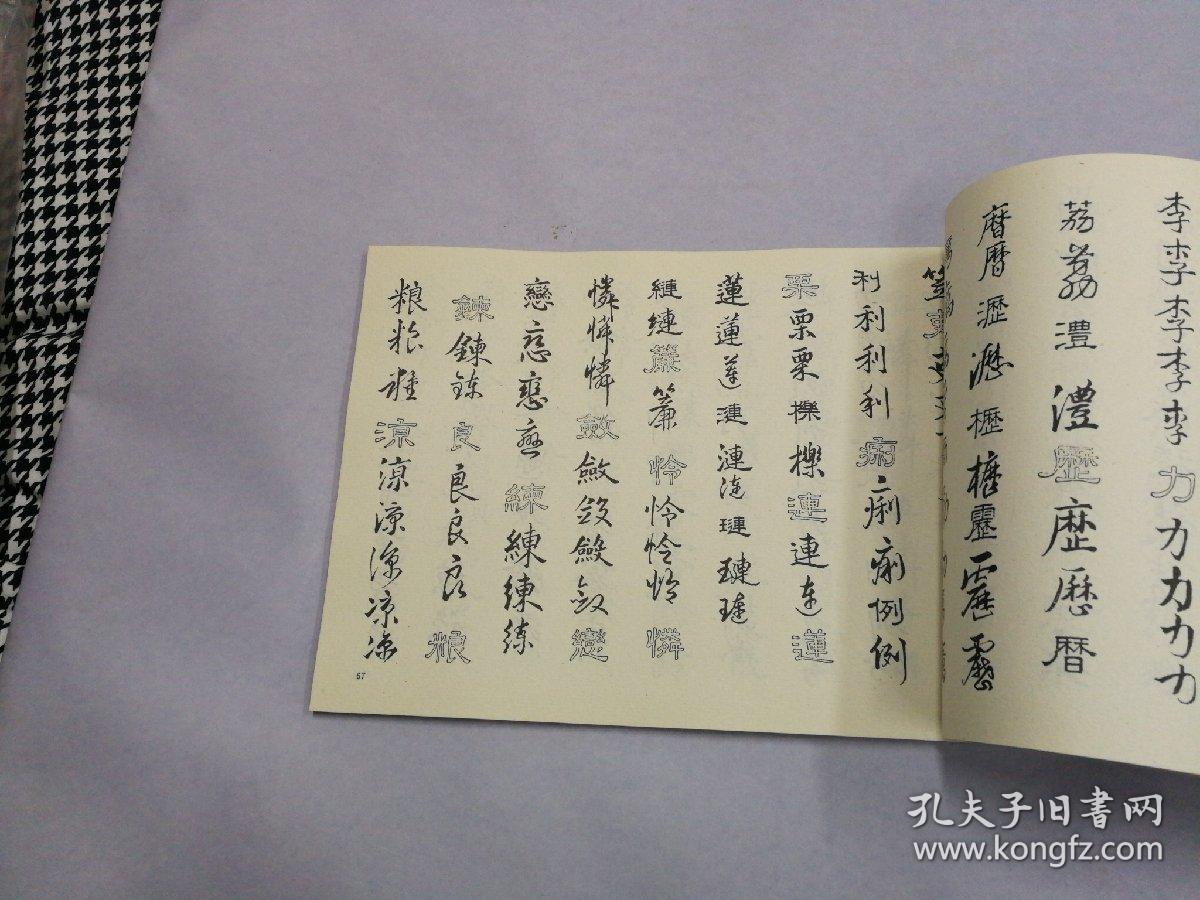 李李李李李力力力力力
荔荔澧澧歷歷歷曆
曆曆瀝瀝櫪櫪靂靂靂
利利利利痢痢痢例例
栗栗栗櫟櫟連連連蓮
蓮蓮蓮漣漣漣璉璉璉
縺縺簾簾怜怜怜怜憐
憐憐憐斂斂斂斂斂戀
戀戀戀戀練練練練
鍊鍊鍊良良良良粮
粮粮粮涼涼涼涼涼涼
57
孔夫子旧书网
www.kongfz.com